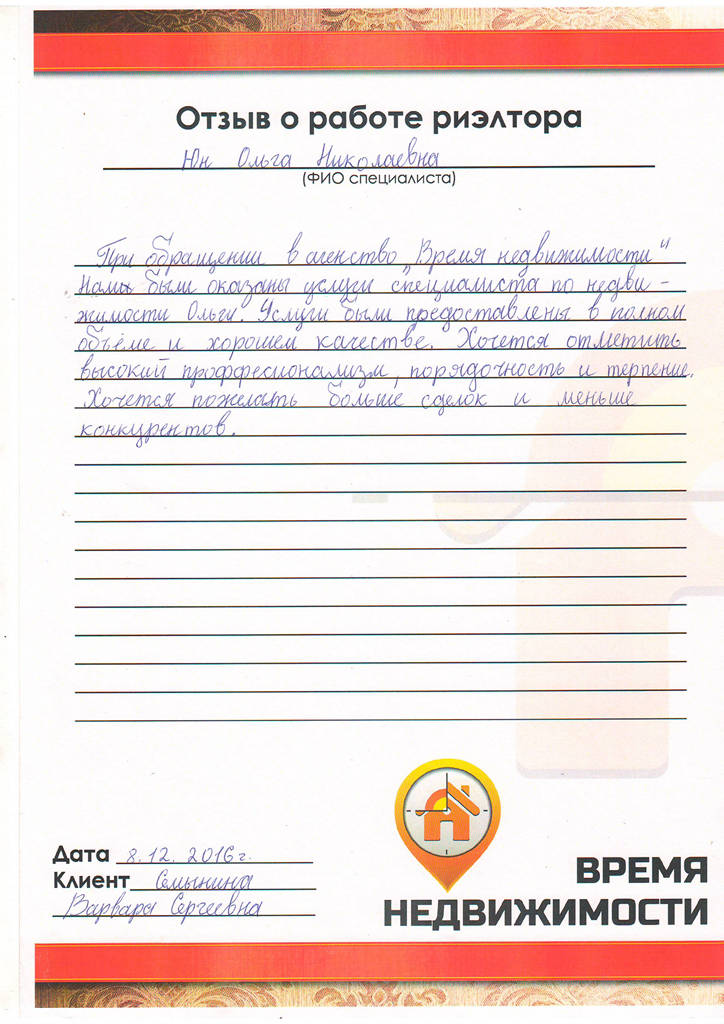 Отзыв о работе риэлтора
Юн Ольга Николаевна
(ФИО специалиста)
При обращении в агенство „Время недвижимости"
Нами были оказаны услуги специалиста по недви-
жимости Ольги. Услуги были предоставлены в полном
объёме и хорошем качестве. Хочется отметить
высокий проффесионализм, порядочность и терпение.
Хочется пожелать больше сделок и меньше
конкурентов.
Дата 8.12.2016г.
Клиент
Варвара Сергеевна
ВРЕМЯ
НЕДВИЖИМОСТИ